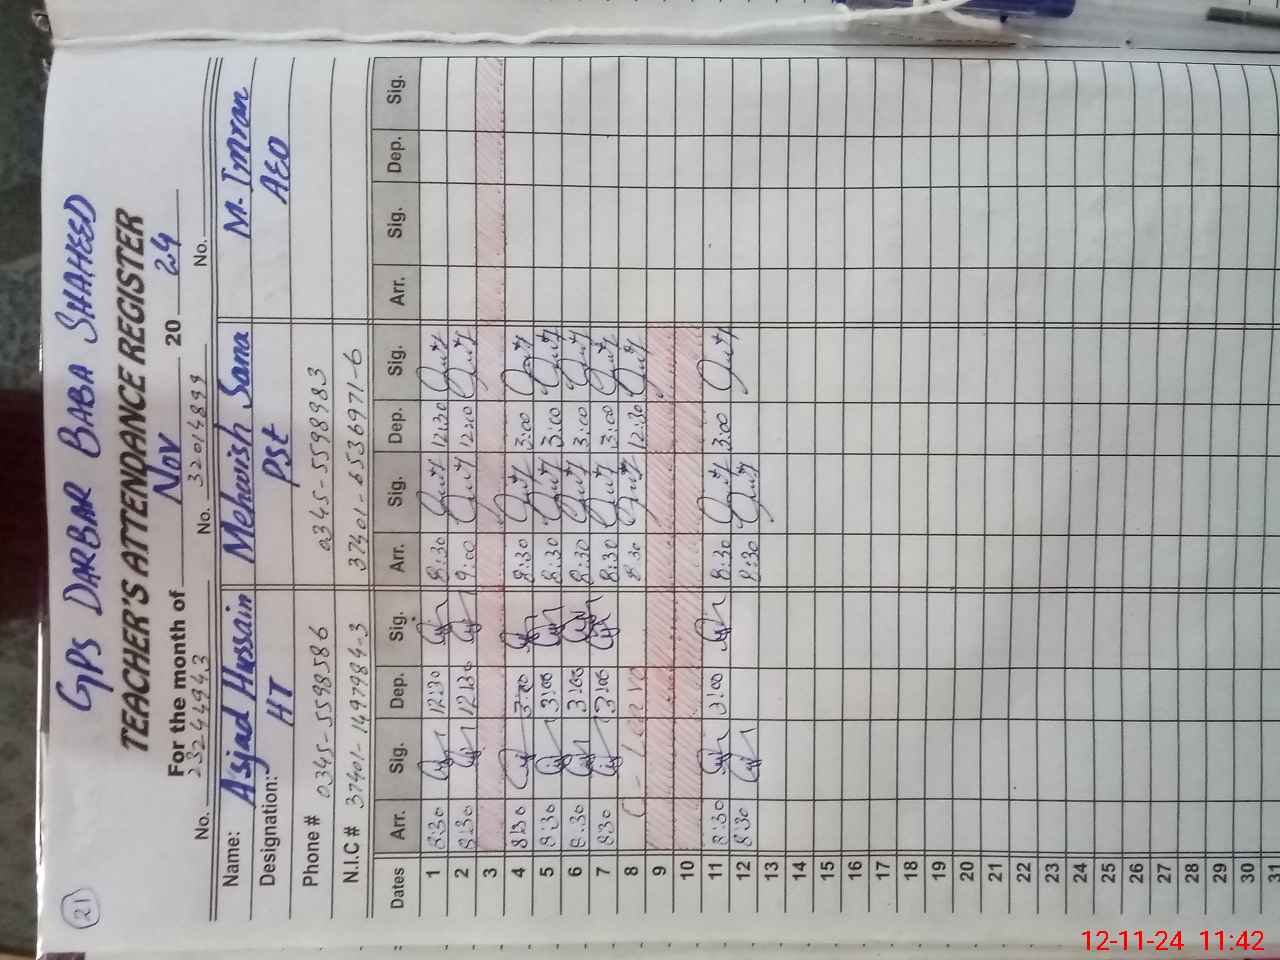 21
GPS DARBAR BABA SHAHEED
TEACHER'S ATTENDANCE REGISTER
For the month of Nov 2024
No. 23244943 No. 32014899 No.
Name: Asjad Hussain Mehwish Sana M. Imran
Designation: HT PST AEO
Phone # 0345-5598586 0345-5598983
N.I.C # 37401-1497984-3 37401-6536971-6
Dates Arr. Sig. Dep. Sig. Arr. Sig. Dep. Sig. Arr. Sig. Dep. Sig.
1 8:30 12:30 8:30 12:30
2 8:30 12:30 9:00 12:20
3
4 8:30 3:00 8:30 3:00
5 8:30 3:00 8:30 3:00
6 8:30 3:00 8:30 3:00
7 8:30 3:00 8:30 3:00
8 C-leave 8:30 12:30
9
10
11 8:30 3:00 8:30 3:00
12 8:30 8:30
13
14
15
16
17
18
19
20
21
22
23
24
25
26
27
28
29
30
31
12-11-24 11:42